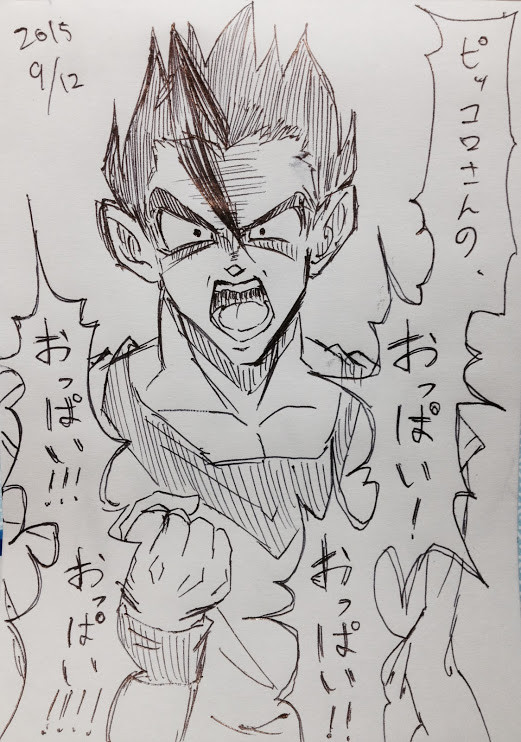 2015
9/12
ピッコロさんの、
おっぱい!
おっぱい!!
おっぱい!!!
おっぱい!!!!